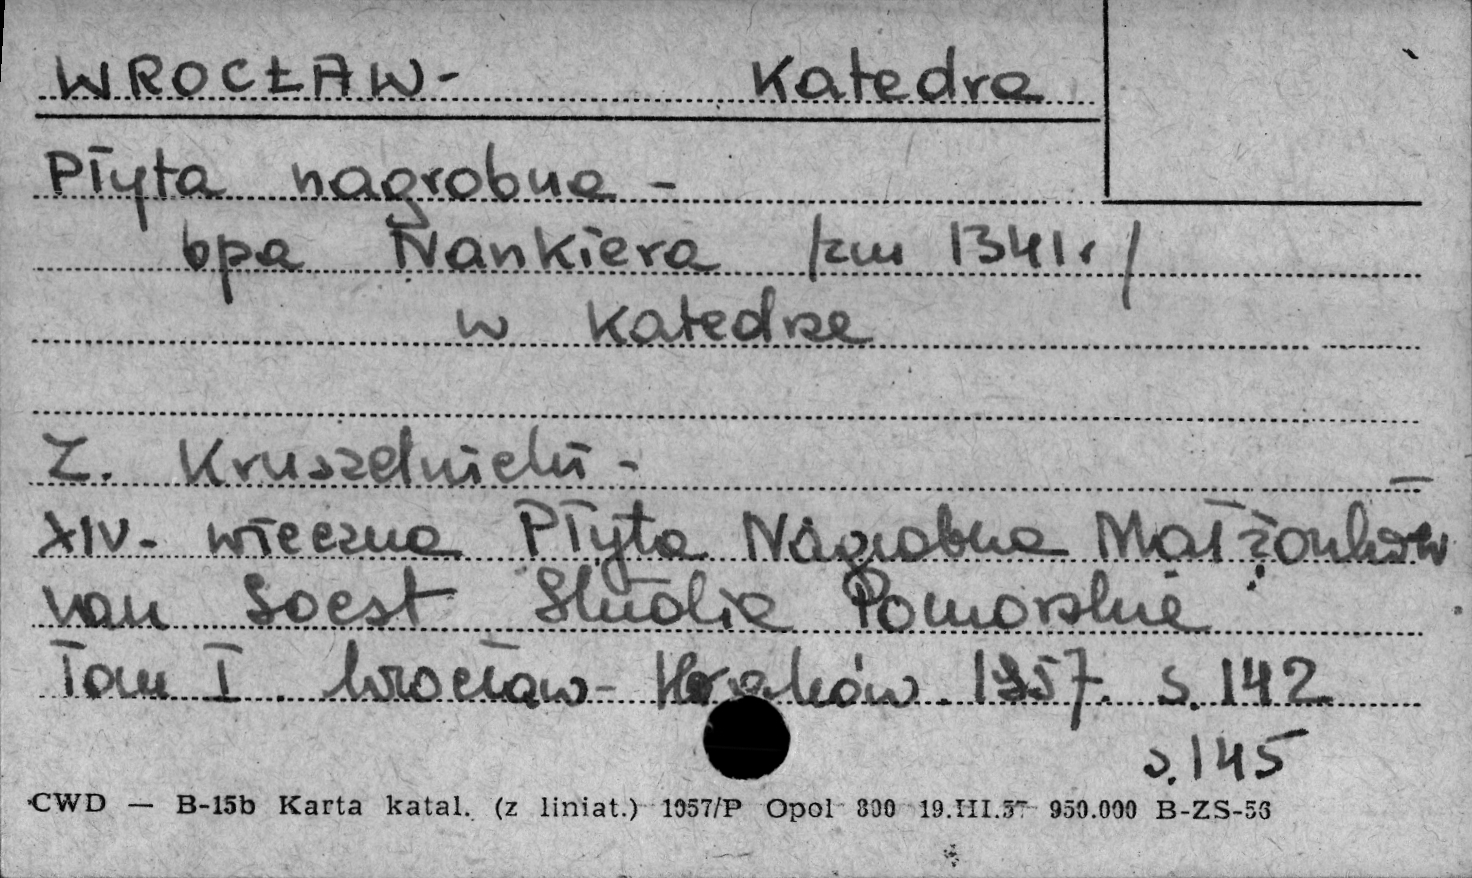 WROCŁAW- Katedra
Płyta nagrobna -
bpa Nankiera /zm 1341r/
w Katedrze
Z. Kruszelnicki -
XIV- wieczna Płyta Nagrobna Małżonków
van Soest Studia Pomorskie
Tom I. Wrocław- Kraków. 1957. s. 142
s. 145
CWD — B-15b Karta katal. (z liniat.) 1057/P Opol 800 19.III.57 950.000 B-ZS-56